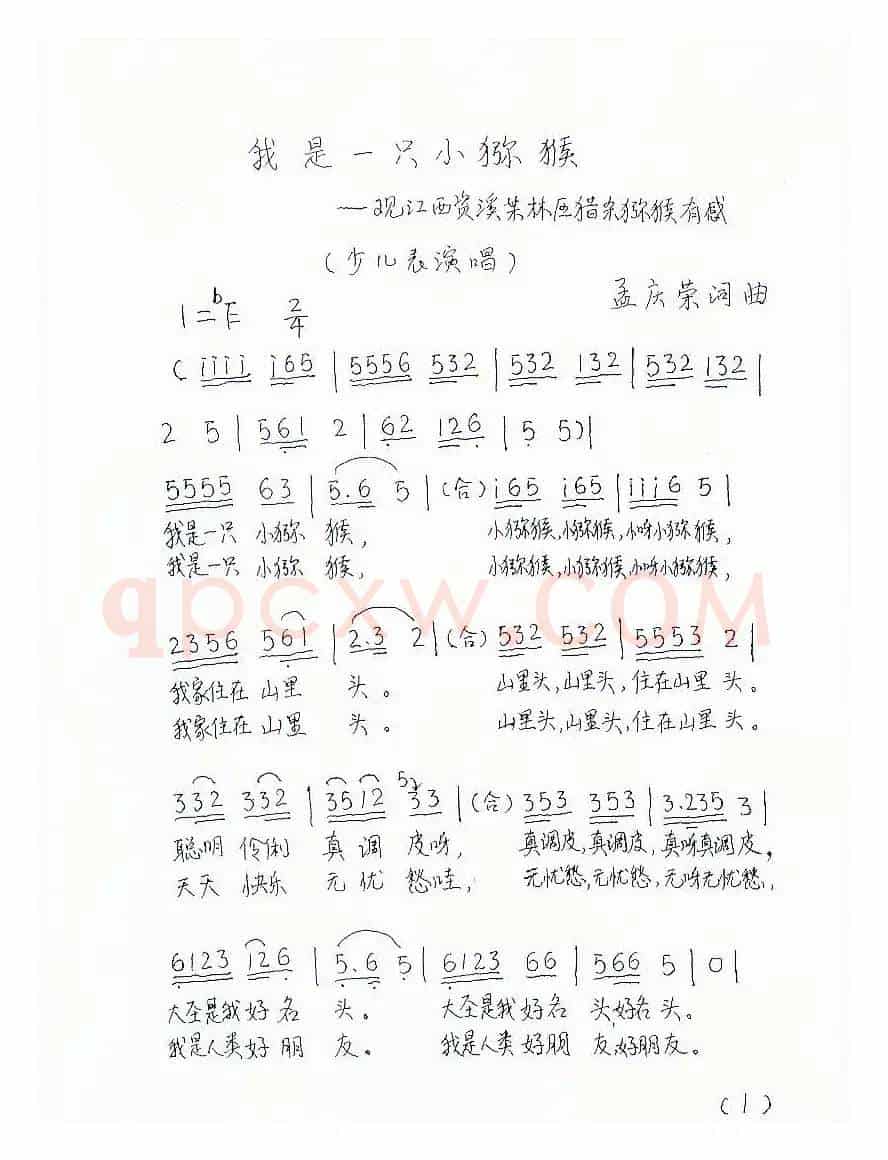 我是一只小猕猴
——观江西资溪某林区猎杀猕猴有感
(少儿表演唱)
孟庆荣词曲
1=bE 2/4
( i i i i i 6 5 | 5 5 5 6 5 3 2 | 5 3 2 1 3 2 | 5 3 2 1 3 2 |
2 5 | 5 6 1 2 | 6 2 1 2 6 | 5 5 ) |
5 5 5 5 6 3 | 5. 6 5 | (合) i 6 5 i 6 5 | i i i 6 5 |
我是一只 小猕 猴, 小猕猴,小猕猴,小呀小猕猴,
我是一只 小猕 猴, 小猕猴,小猕猴,小呀小猕猴,
qpcxw.COM
2 3 5 6 5 6 1 | 2. 3 2 | (合) 5 3 2 5 3 2 | 5 5 5 3 2 |
我家住在 山里 头。 山里头,山里头,住在山里 头。
我家住在 山里 头。 山里头,山里头,住在山里 头。
3 3 2 3 3 2 | 3 5 1 2 5 3 3 | (合) 3 5 3 3 5 3 | 3. 2 3 5 3 |
聪明 伶俐 真 调 皮呀, 真调皮,真调皮,真呀真调皮,
天天 快乐 无 忧 愁哇, 无忧愁,无忧愁,无呀无忧愁,
6 1 2 3 1 2 6 | 5. 6 5 | 6 1 2 3 6 6 | 5 6 6 5 | 0 |
大圣是我 好 名 头。 大圣是我 好名 头,好名 头。
我是人类 好 朋 友。 我是人类 好朋 友,好朋友。
(1)